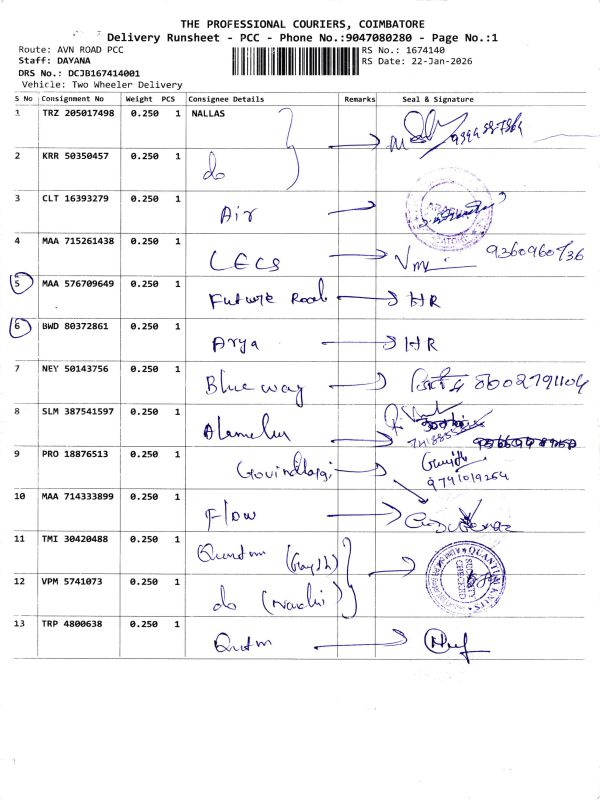 THE PROFESSIONAL COURIERS, COIMBATORE
Delivery Runsheet - PCC - Phone No.:9047080280 - Page No.:1
Route: AVN ROAD PCC
RS No.: 1674140
Staff: DAYANA
RS Date: 22-Jan-2026
DRS No.: DCJB167414001
Vehicle: Two Wheeler Delivery
S No Consignment No Weight PCS Consignee Details Remarks Seal & Signature
1 TRZ 205017498 0.250 1 NALLAS
2 KRR 50350457 0.250 1 do
3 CLT 16393279 0.250 1 Air
4 MAA 715261438 0.250 1 LECS 9360960736
5 MAA 576709649 0.250 1 Future Root HR
6 BWD 80372861 0.250 1 Arya HR
7 NEY 50143756 0.250 1 Blue way
8 SLM 387541597 0.250 1 Alamelu
9 PRO 18876513 0.250 1 9791019254
10 MAA 714333899 0.250 1 Flow
11 TMI 30420488 0.250 1
12 VPM 5741073 0.250 1 do
QUANTUM KNITS
SECURITY
CHECKED
13 TRP 4800638 0.250 1